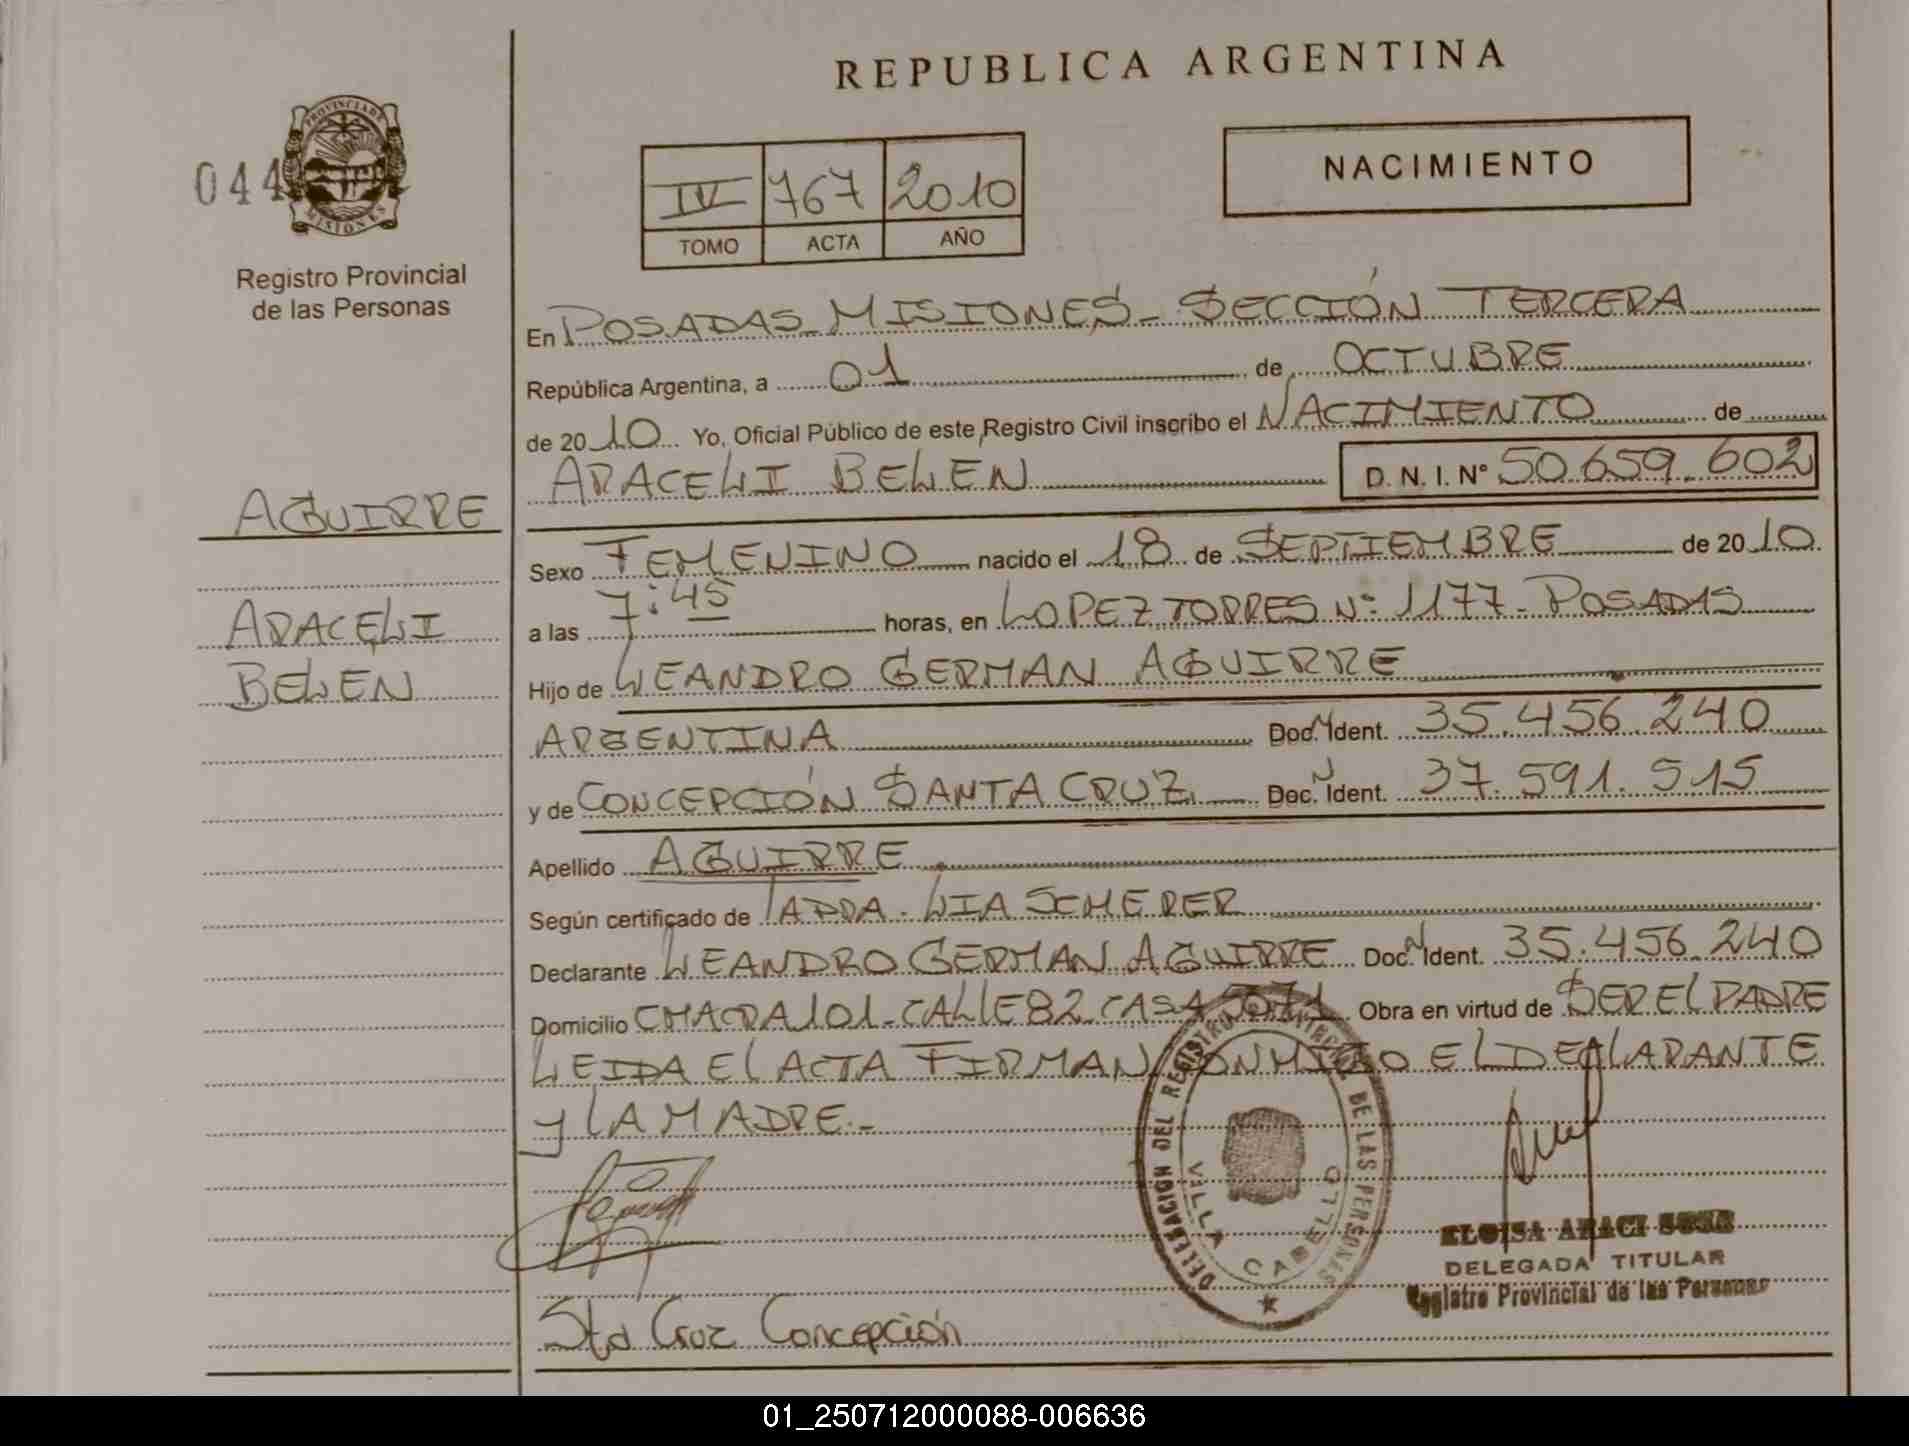 REPUBLICA ARGENTINA
044
PROVINCIA DE MISIONES
Registro Provincial
de las Personas
IV 767 2010
TOMO ACTA AÑO
NACIMIENTO
En POSADAS MISIONES - SECCIÓN TERCERA
República Argentina, a 01 de OCTUBRE
de 2010 Yo, Oficial Público de este Registro Civil inscribo el NACIMIENTO de
ARACELI BELEN D. N. I. N° 50.659.602
AGUIRRE
ARACELI
BELEN
Sexo FEMENINO nacido el 18 de SEPTIEMBRE de 2010
a las 7:45 horas, en LOPEZ TORRES N° 1177 - POSADAS
Hijo de LEANDRO GERMAN AGUIRRE
ARGENTINA Doc. N Ident. 35.456.240
y de CONCEPCIÓN SANTA CRUZ Doc. N Ident. 37.591.515
Apellido AGUIRRE
Según certificado de LIA SCHERER
Declarante LEANDRO GERMAN AGUIRRE Doc. N Ident. 35.456.240
Domicilio CHACRA 101 - CALLE 82 CASA Obra en virtud de SER EL PADRE
LEIDA EL ACTA FIRMAN CONMIGO EL DECLARANTE
Y LA MADRE.-
DELEGACION DEL REGISTRO PROVINCIAL DE LAS PERSONAS
VILLA CABELLO
ELOISA ARACI
DELEGADA TITULAR
Registro Provincial de las Personas
Sta Cruz Concepción
01_250712000088-006636